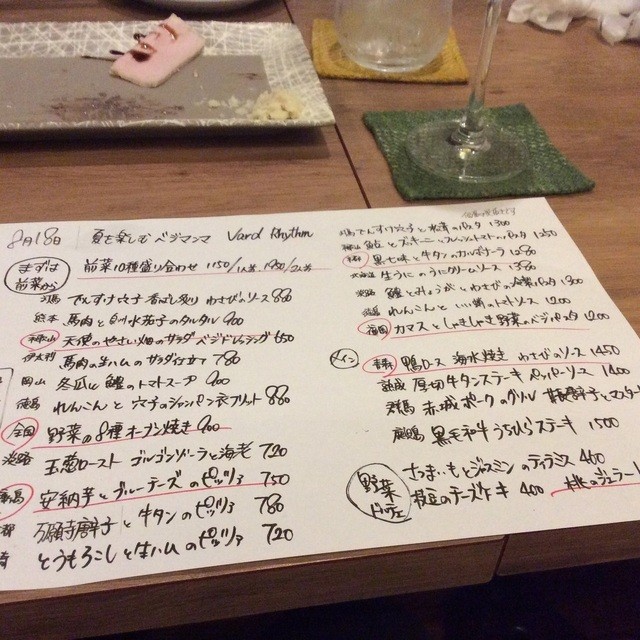 8月18日 夏を楽しむベジマンマ Vard Rhythm
まずは前菜から
前菜10種盛り合わせ 1150/1人前 1950/2人前
でんすけ穴子 香ばし炙り わさびのソース 880
熊本 馬肉と白川水茄子のタルタル 900
和歌山 天使のやさい畑のサラダ ベジドレッシング 650
伊太利 馬肉の生ハムのサラダ仕立て 780
岡山 冬瓜と鱧のトマトスープ 900
徳島 れんこんと穴子のシャンパン衣フリット 880
全国 野菜の8種オーブン焼き 900
淡路 玉葱ロースト ゴルゴンゾーラと海老 720
安納芋とブルーチーズのピッツァ 750
都 万願寺唐辛子と牛タンのピッツァ 780
崎 とうもろこしと生ハムのピッツァ 720
でんすけ穴子と水茄のパスタ 1300
とズッキーニとフレッシュトマトのパスタ 1250
黒七味と牛タンのカルボナーラ 1280
北海道 生うにのうにクリームソース 1380
淡路 鱧とみょうがとわさびの冷製パスタ 1300
れんこんといい蛸のトマトソース 1200
福岡 カマスとしゃきしゃき野菜のペペパスタ 1200
メイン
青森 鴨ロース 海水焼き わさびのソース 1450
熟成 厚切牛タンステーキ ペッパーソース 1400
群馬 赤城ポークのグリル
黒毛和牛うちひらステーキ 1500
野菜ドルチェ
さつまいもとジャスミンのティラミス 460
枝豆のチーズケーキ 400 桃のジェラート